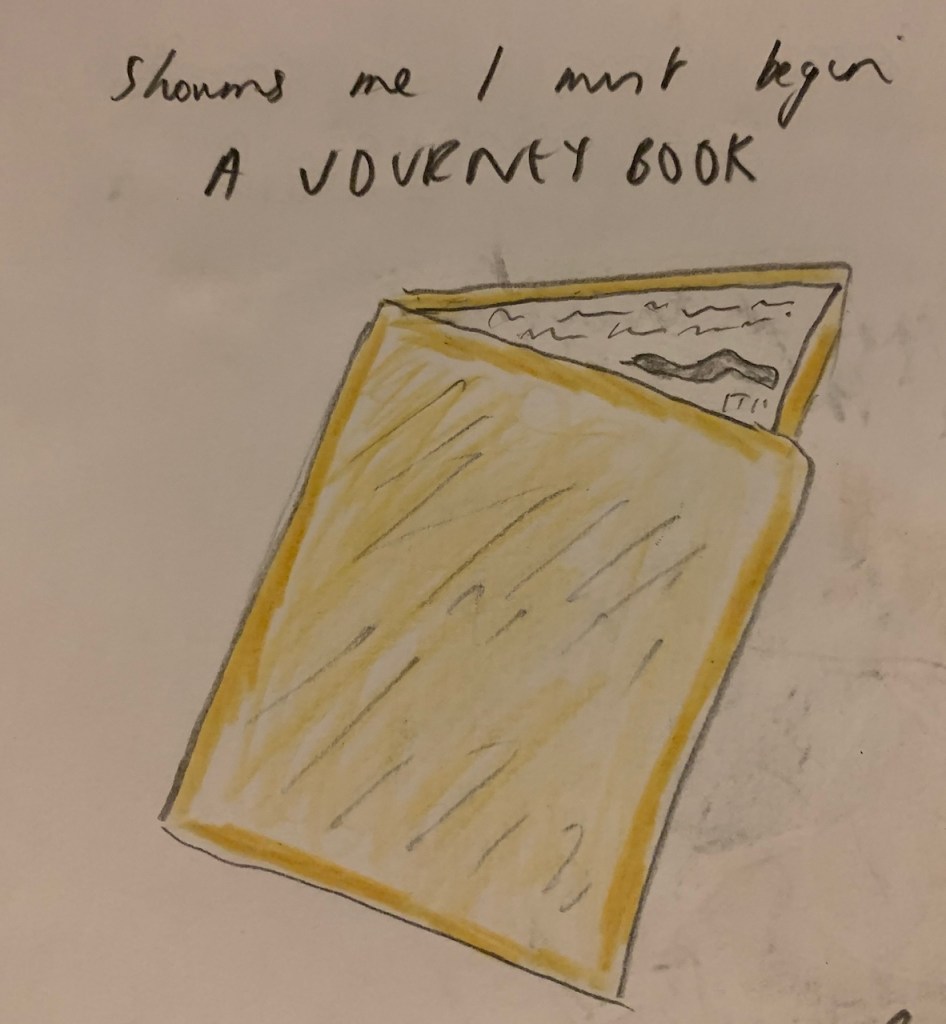 Shows me I must begin
A JOURNEY BOOK